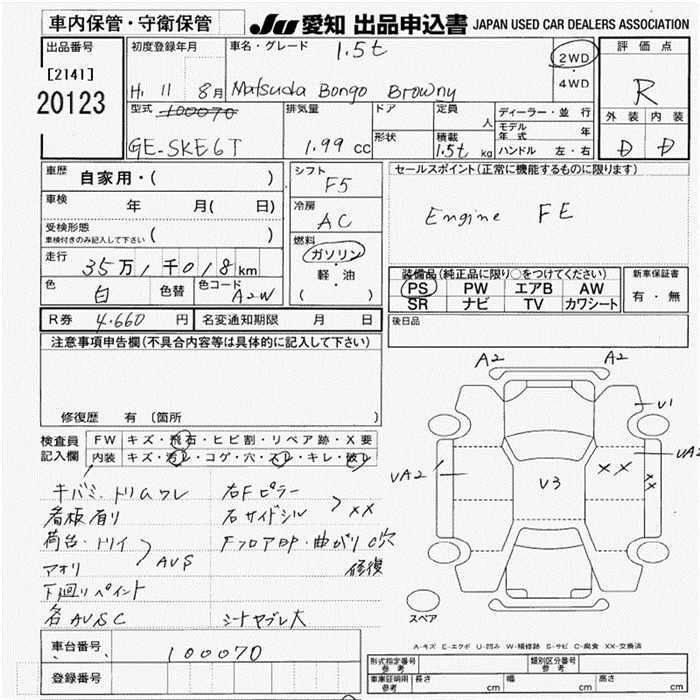 車内保管・守衛保管
JU 愛知 出品申込書 JAPAN USED CAR DEALERS ASSOCIATION
出品番号
[2141]
20123
初度登録年月
H. 11 8月
車名・グレード 1.5t
Matsuda Bongo Browny
2WD
・
4WD
評価点
R
外装 内装
D D
型式 100070
GE-SKE6T
排気量
1.99 cc
ドア
形状
定員
人
積載
1.5t kg
ディーラー・並行
モデル年式 年
ハンドル 左・右
車歴
自家用・( )
車検
年 月( 日)
受検形態
車検付きのみ記入して下さい ( )
走行
35万1千018km
色
白
色替
色コード
A2W
シフト
F5
冷房
AC
燃料
ガソリン
・
軽・油
( )
セールスポイント(正常に機能するものに限ります)
Engine FE
装備品(純正品に限り○をつけてください)
PS PW エアB AW
SR ナビ TV カワシート
新車保証書
有・無
後日品
R券 4.660 円
名変通知期限 月 日
注意事項申告欄(不具合内容等は具体的に記入して下さい)
修復歴 有 〔箇所 )
検査員記入欄
FW キズ・飛石・ヒビ割・リペア跡・X要
内装 キズ・汚レ・コゲ・穴・スレ・キレ・破レ
キバミ、トリムワレ
看板有り
荷台・トリイ
アオリ AVS
下廻りペイント
各AUSC
右Fピラー
右サイドシル XX
FフロアDP・曲がり C穴
修復
シートヤブレ大
A2 A2
U1
UA2
UA2
V3
XX
XX
スペア
A-キズ E-エクボ U-凹み W-補修跡 S-サビ C-腐食 XX-交換済
車台番号
100070
登録番号
形式指定番号 参考
類別区分番号 参考
車庫証明用 参考 長さ cm 幅 cm 高さ cm